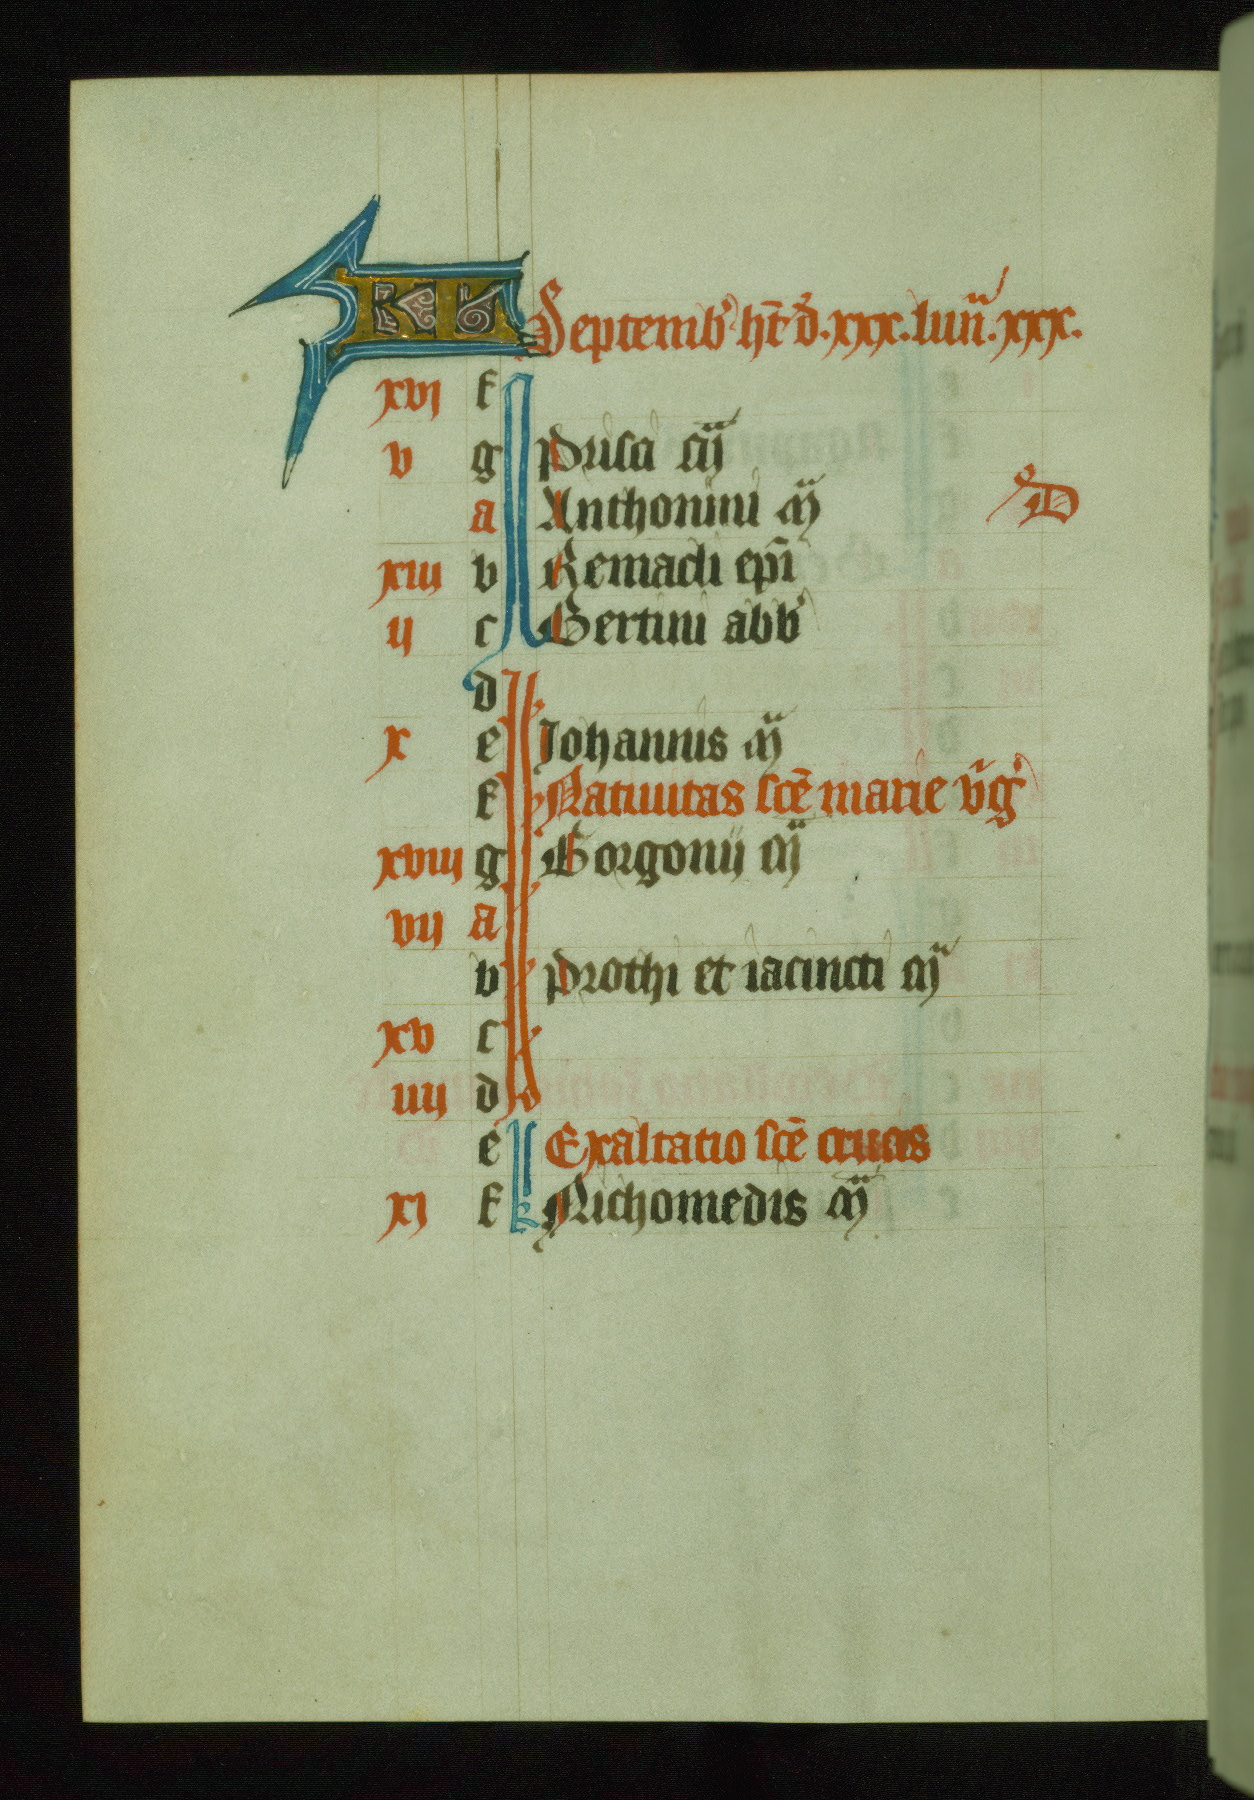 KL Septemb' ht̄ d'. xxx. luñ. xxx.
xvi f
v g Prisci m̄
a Anthonini m̄ D
xiii b Remacli ep̄i
ii c Bertini abb'
d
x e Johannis m̄
f Natiuitas sc̄e marie v̄g'
xviii g Gorgonii m̄
vii a
b Prothi et iacincti m̄
xv c
iiii d
e Exaltatio sc̄e crucis
xi f Nichomedis m̄